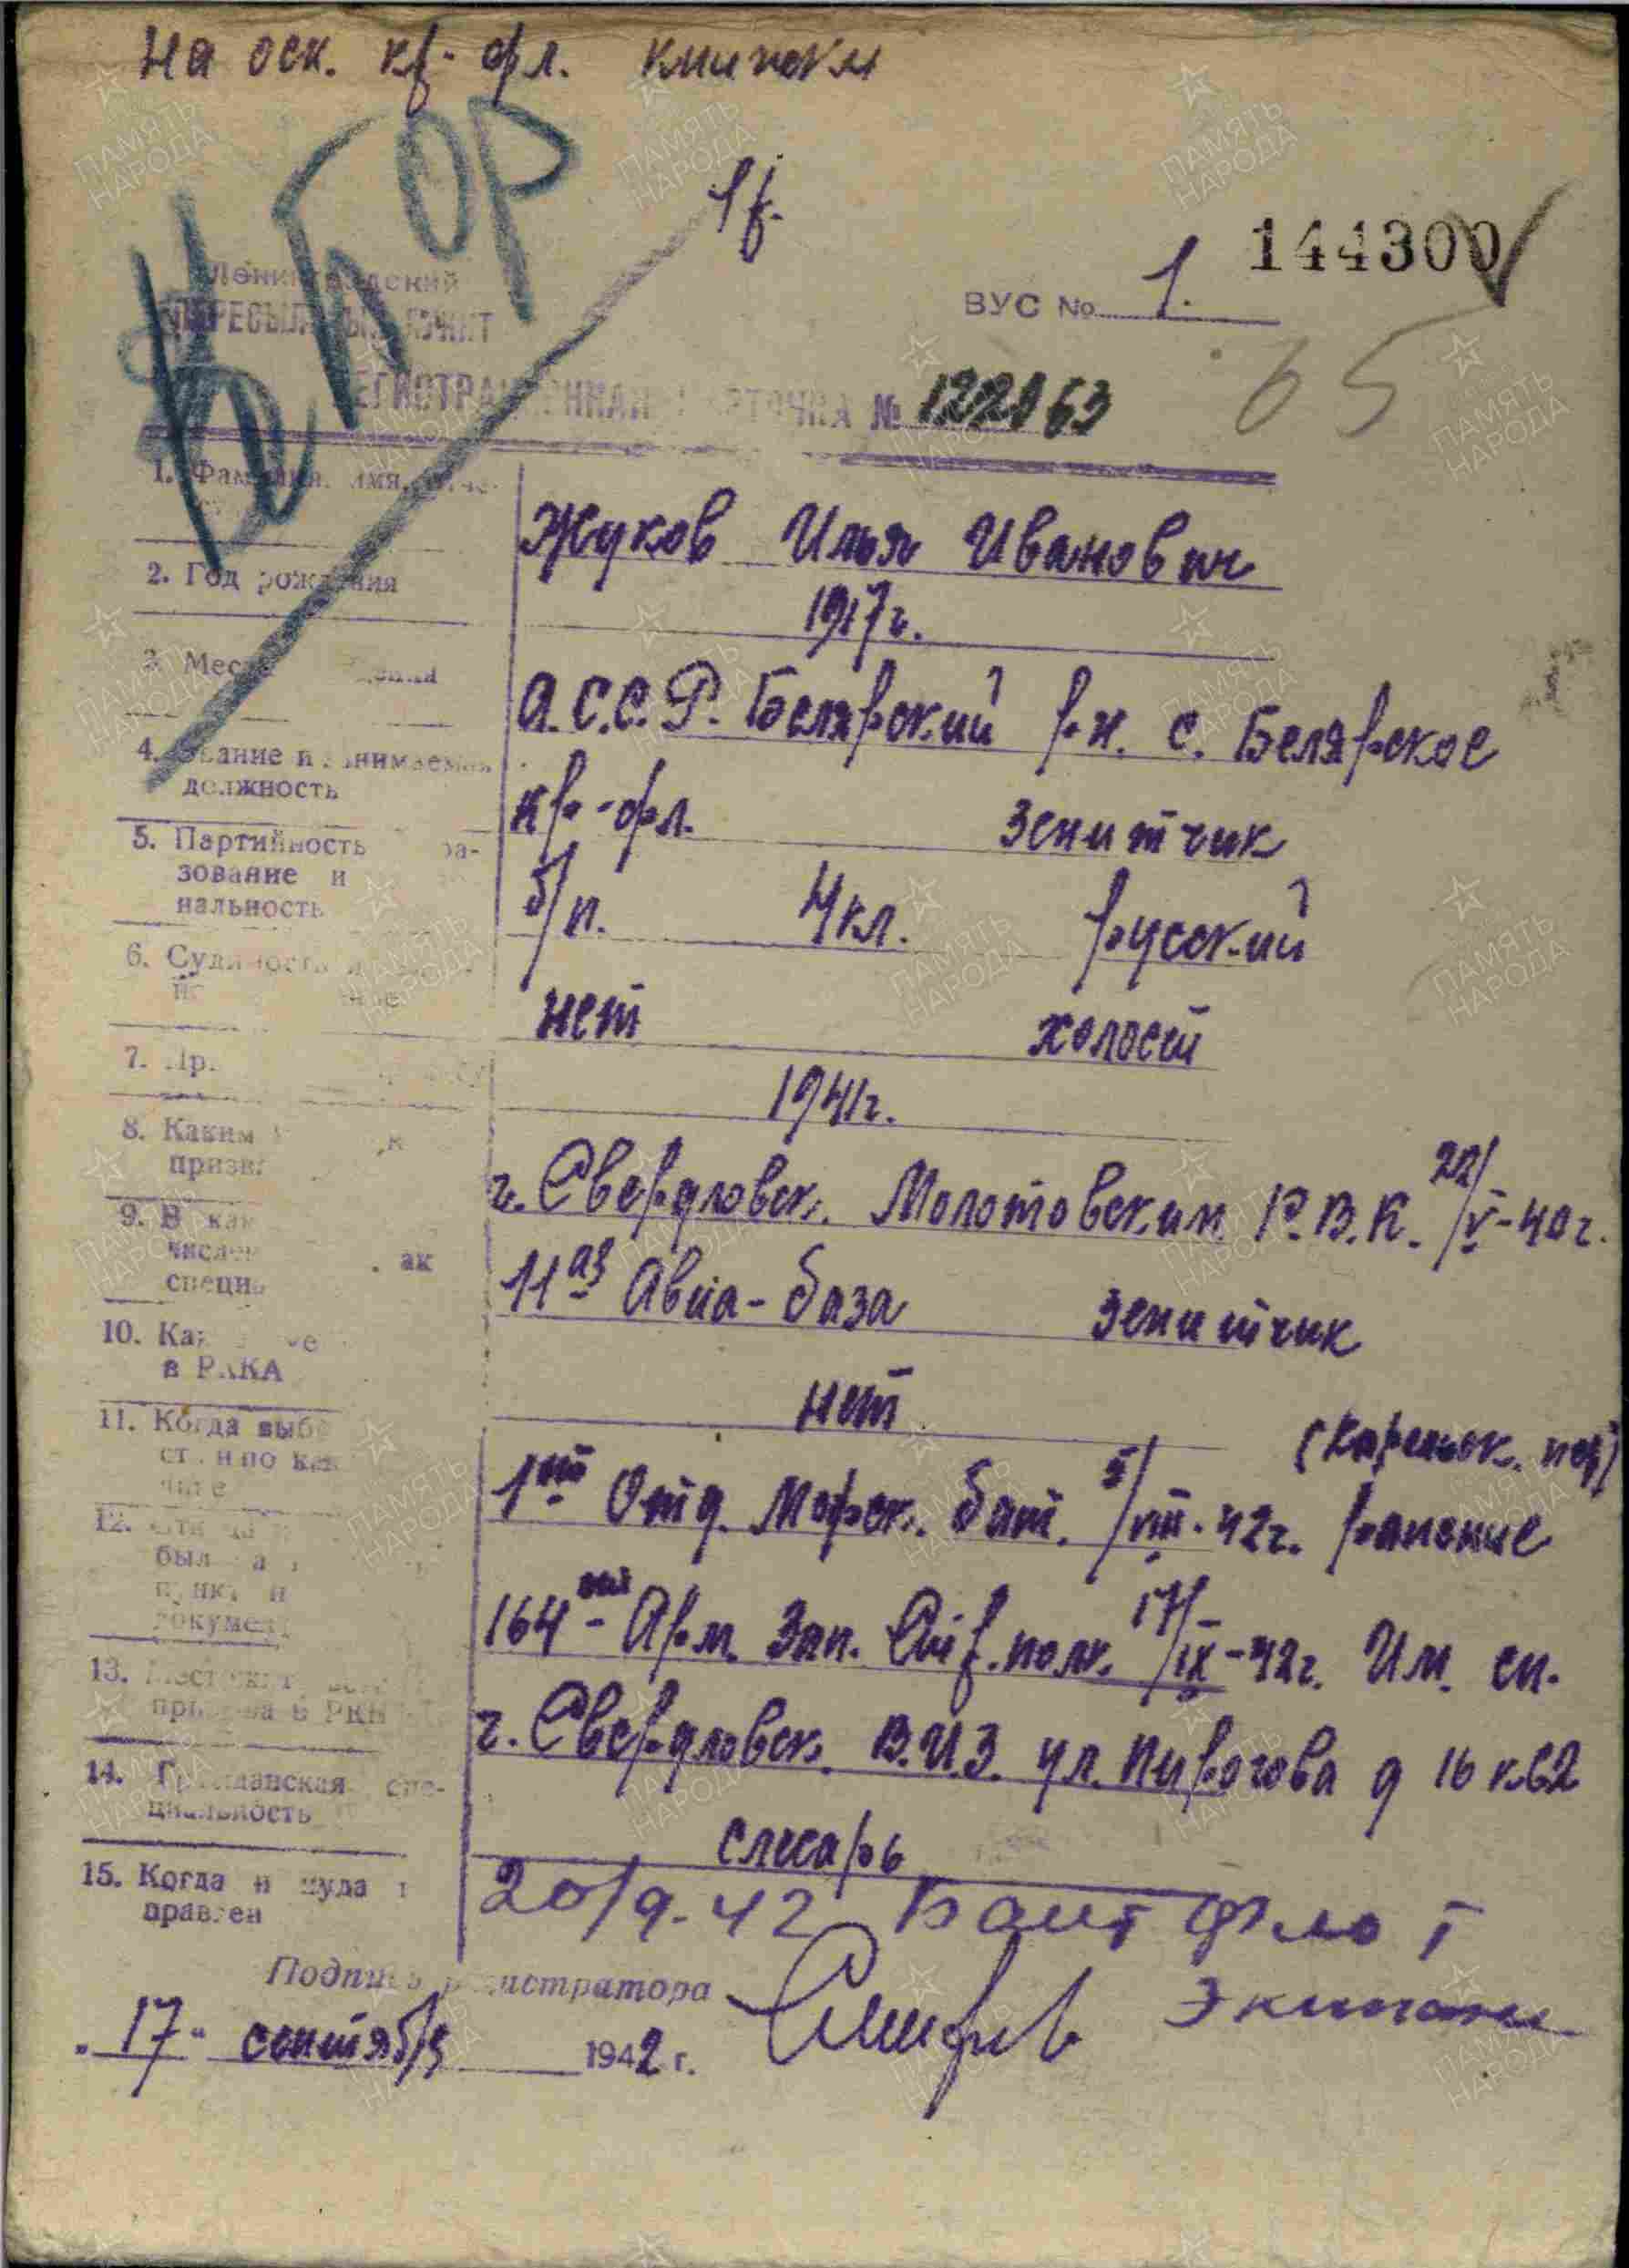 На осн. кр-фл. книжки
КГОР
1 г.
144300
ВУС № 1.
Ленинградский
ПЕРЕСЫЛЬНЫЙ ПУНКТ
65
РЕГИСТРАЦИОННАЯ КАРТОЧКА № 122963
1. Фамилия, имя, отче-
Жуков Илья Иванович
2. Год рождения
1917г.
3. Место рождения
А.С.С.Р. Белярский р-н. с. Белярское
4. Звание и занимаемая
должность
кр-фл. зенитчик
5. Партийность ра-
зование и
нальность
б/п. 4кл. русский
6. Судимость
нет холост
7. Пр.
1941г.
8. Каким
призва
г. Свердловск. Молотовским Р.В.К. 22/V-40г.
9. В как
числен ак
специ
11ая Авиа-база зенитчик
10. Ка
в РККА
нет
11. Когда выб
ст. и по как
чине
(Карельск. пер)
1ый Отд. Морск. бат. 5/VIII-42г. ранение
12.
был
пункт и
докумен
164ый Арм. Зап. Стр. полк. 17/IX-42г. Им. сп.
13. Мест жит
призыва в РКК
г. Свердловск. В.И.З. ул. Пирогова д 16 кв2
14. Гражданская спе-
циальность
слесарь
15. Когда и куда
правлен
20/9-42 Балт Флот
Экипаж
Подпись регистратора
17 сентября 1942 г.